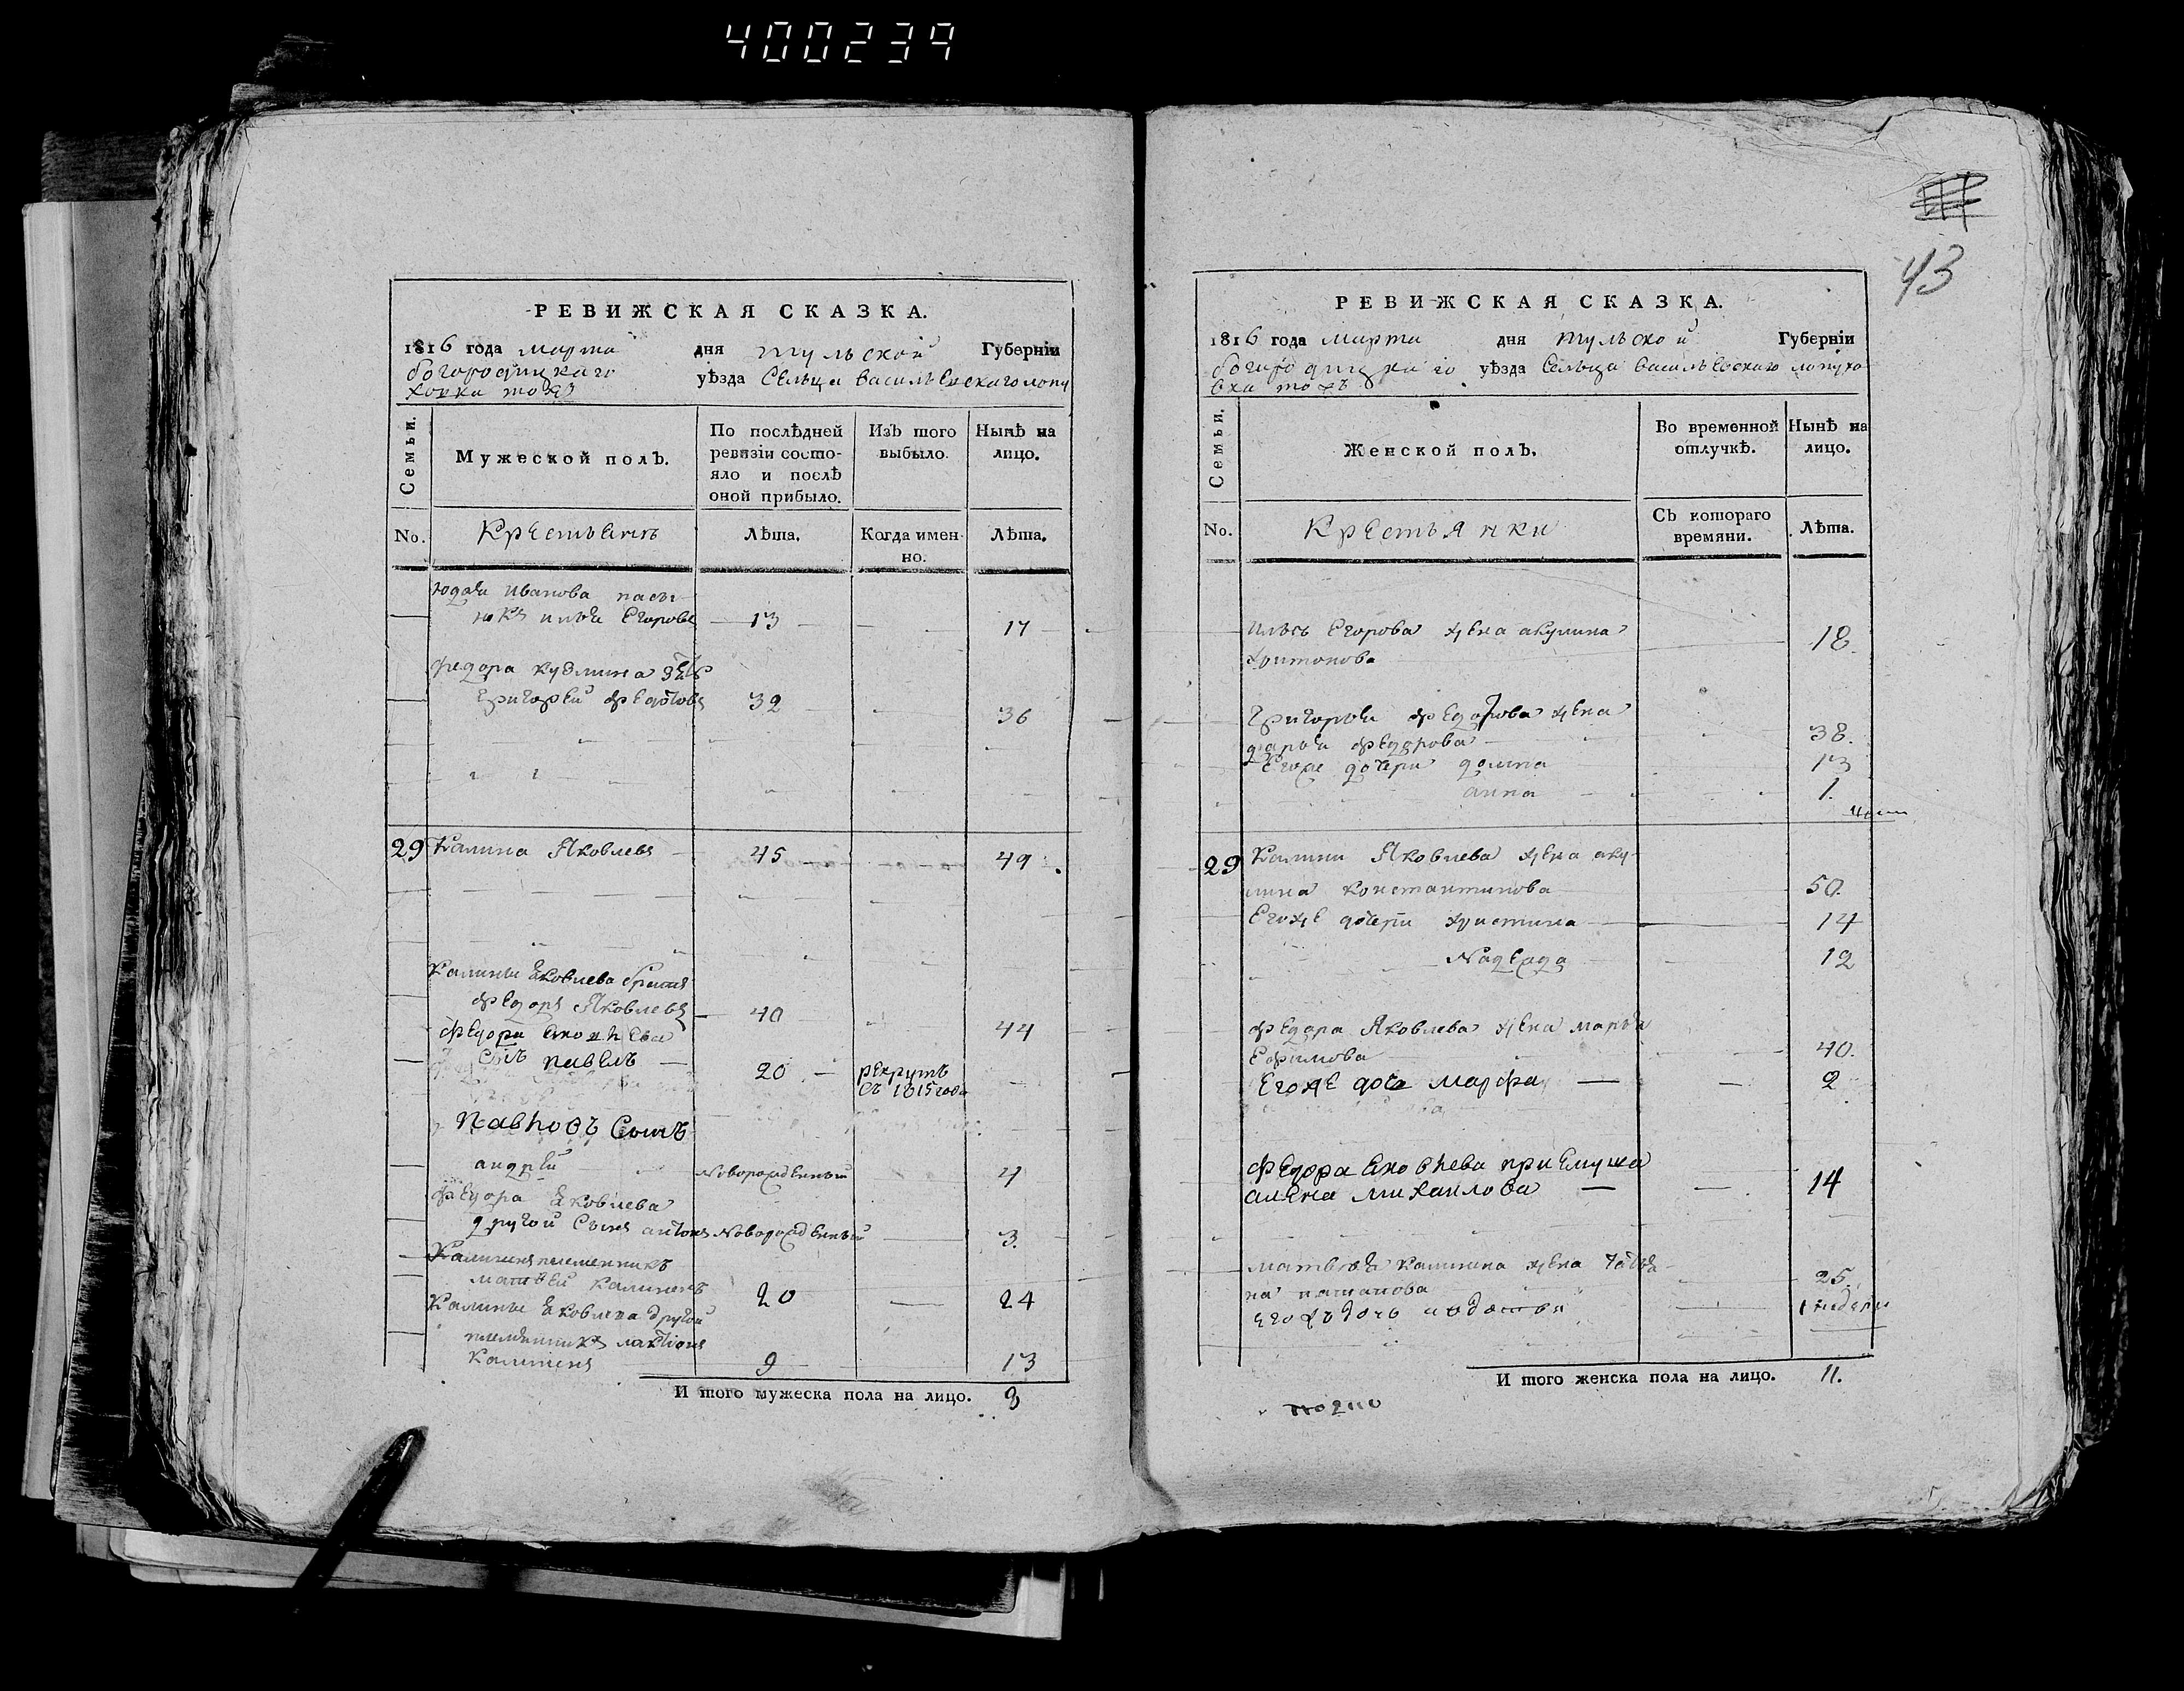 400239
43
РЕВИЖСКАЯ СКАЗКА.
1816 года марта дня тульской Губернїи
богородицкаго уѣзда Сельца васильевскаго лопу
ховка тожъ
Семьи.
Мужеской полъ.
По послѣдней ревизїи состояло и послѣ оной прибыло.
Изъ того выбыло.
Нынѣ на лицо.
No.
Крестьянъ
Лѣта.
Когда именно.
Лѣта.
иванова пасы
нокъ илья Егоровъ 13 17
федора кузмина
григорей федотовъ 32 36
29 Калина Яковлевъ 45 49
Калины Яковлева братъ
федоръ Яковлевъ 40 44
федора яковлева
сынъ павелъ 20 рекрутъ
съ 1815 года
павловъ Сынъ
андрей Новорожденный 4
федора Яковлева
другой Сынъ антонъ Новорожденный 3.
Калининъ племенникъ
матвей калининъ 20 24
Калины Яковлева другой
племянникъ лактионъ
калининъ 9 13
И того мужеска пола на лицо. 8
РЕВИЖСКАЯ СКАЗКА.
1816 года марта дня тульской Губернїи
богородицкаго уѣзда Сельца васильевскаго лопухо
вка тожъ
Семьи.
Женской полъ.
Во временной отлучкѣ.
Нынѣ на лицо.
No.
Крестьянки
Съ котораго времяни.
Лѣта.
ильи Егорова жена акулина
харитонова 18.
григорья федотова жена
дарья федорова 38.
Егоже дочери домна 13
анна 1.
29 Калины Яковлева жена аку
лина константинова 50.
Егоже дочери христина 14
Надежда 12
федора Яковлева жена марья
Ефимова 40.
Егоже дочь марфа 2
федора яковлева приемыша
алена михаилова 14
матвея калинина жена татья
на 25.
егожъ дочь 1 недели
И того женска пола на лицо. 11.